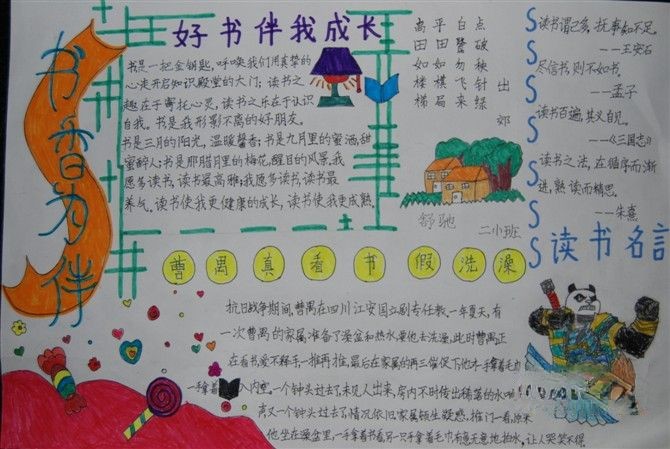 书香为伴
好书伴我成长
书是一把金钥匙,呼唤我们用真挚的
心走开启知识殿堂的大门;读书之
趣在于寄托心灵,读书之乐在于认识
自我。书是我形影不离的好朋友。
书是三月的阳光,温暖馨香;书是九月里的蜜酒,甜
蜜醉人;书是那腊月里的梅花,醒目的风景。我
愿多读书,读书最高雅;我愿多读书,读书最
养气。读书使我更健康的成长,读书使我更成熟.
高平白点
田田鹭破
如如勿秧
楼棋飞针出
梯局来绿郊
舒驰
二小班
读书谓已多,抚事知不足。
——王安石
尽信书,则不如书。
——孟子
读书百遍,其义自见。
——《三国志》
读书之法,在循序而渐
进,熟读而精思。
——朱熹
读书名言
曹禺真看书假洗澡
抗日战争期间,曹禺在四川江安国立剧专任教.一年夏天,有
一次曹禺的家属准备了澡盆和热水要他去洗澡,此时曹禺正
在看书,爱不释手,一推再推,最后在家属的再三催促下他才一手拿着毛巾
一手拿着 入内室。一个钟头过去了,未见人出来,房内不时传出稀落的水
声又一个钟头过去了,情况依旧.家属顿生疑惑.推门一看,原来
他坐在澡盆里,一手拿着书看,另一只手拿着毛巾有意无意地拍水,让人哭笑不得.